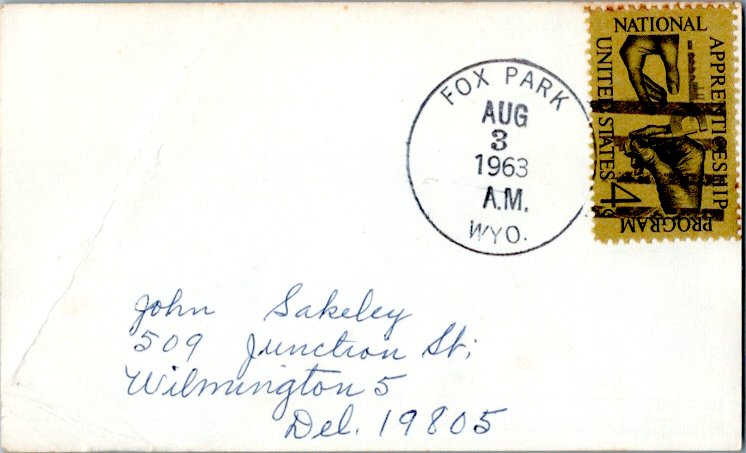 FOX PARK
AUG
3
1963
A.M.
WYO.
NATIONAL
APPRENTICESHIP
PROGRAM
UNITED STATES
4¢
John Sakeley
509 Junction St;
Wilmington 5
Del. 19805